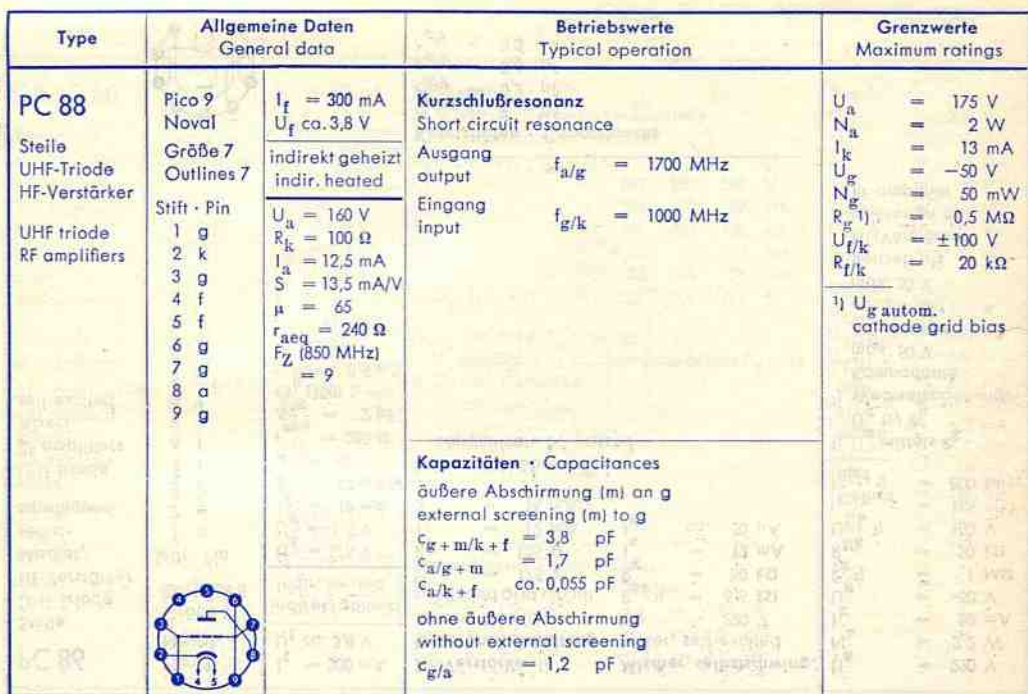 Type
Allgemeine Daten
General data
Betriebswerte
Typical operation
Grenzwerte
Maximum ratings
PC 88
Steile
UHF-Triode
HF-Verstärker
UHF triode
RF amplifiers
Pico 9
Noval
Größe 7
Outlines 7
Stift · Pin
1 g
2 k
3 g
4 f
5 f
6 g
7 g
8 a
9 g
I_f = 300 mA
U_f ca. 3,8 V
indirekt geheizt
indir. heated
U_a = 160 V
R_k = 100 Ω
I_a = 12,5 mA
S = 13,5 mA/V
µ = 65
r_aeq = 240 Ω
F_Z (850 MHz)
= 9
Kurzschlußresonanz
Short circuit resonance
Ausgang
output f_a/g = 1700 MHz
Eingang
input f_g/k = 1000 MHz
Kapazitäten · Capacitances
äußere Abschirmung (m) an g
external screening (m) to g
c_g + m/k + f = 3,8 pF
c_a/g + m = 1,7 pF
c_a/k + f ca. 0,055 pF
ohne äußere Abschirmung
without external screening
c_g/a = 1,2 pF
U_a = 175 V
N_a = 2 W
I_k = 13 mA
U_g = −50 V
N_g = 50 mW
R_g 1) = 0,5 MΩ
U_f/k = ±100 V
R_f/k = 20 kΩ
1) U_g autom.
cathode grid bias